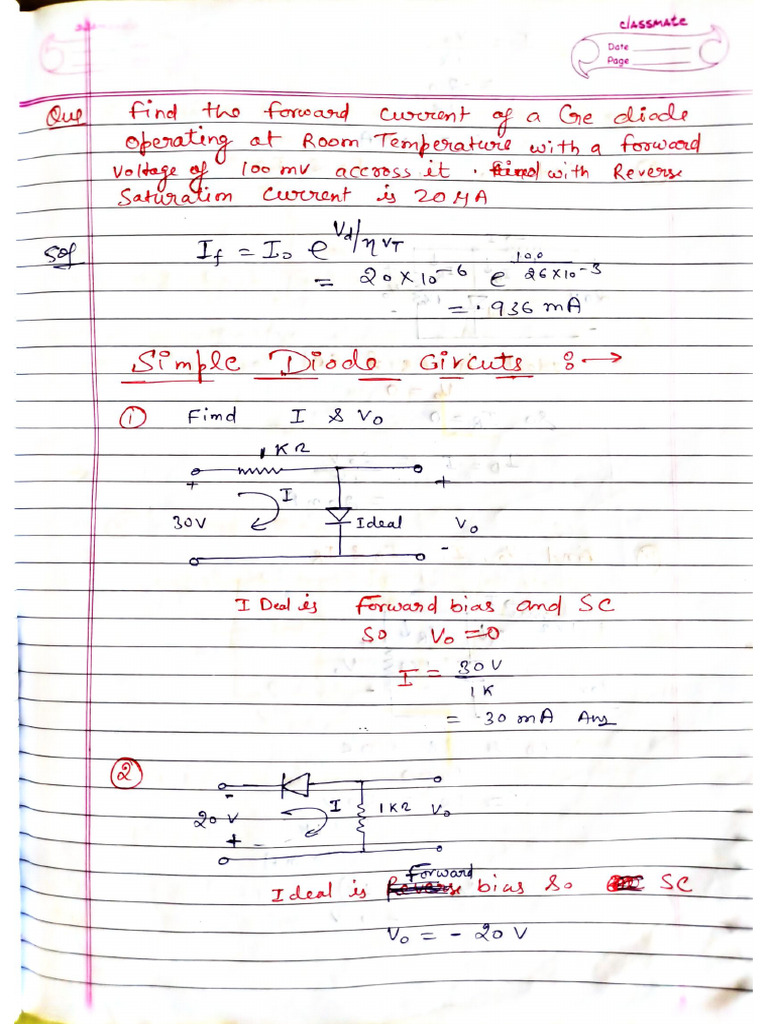 classmate
Date
Page
Que find the forward current of a Ge diode
operating at Room Temperature with a forward
voltage of 100 mv accross it . with Reverse
Saturation current is 20 μA
Sol I_f = I_o e^{V_d/ηV_T}
= 20 × 10^{-6} e^{\frac{100}{26×10^{-3}}}
= .936 mA
Simple Diode Circuts :→
① Find I & V_o
1 KΩ
+ I +
30V Ideal V_o
-
I Deal is forward bias and SC
So V_o = 0
I = 30V
1K
= 30 mA Ans
②
- I 1KΩ V_o
20 V
+
Forward
Ideal is bias So SC
V_o = - 20 V